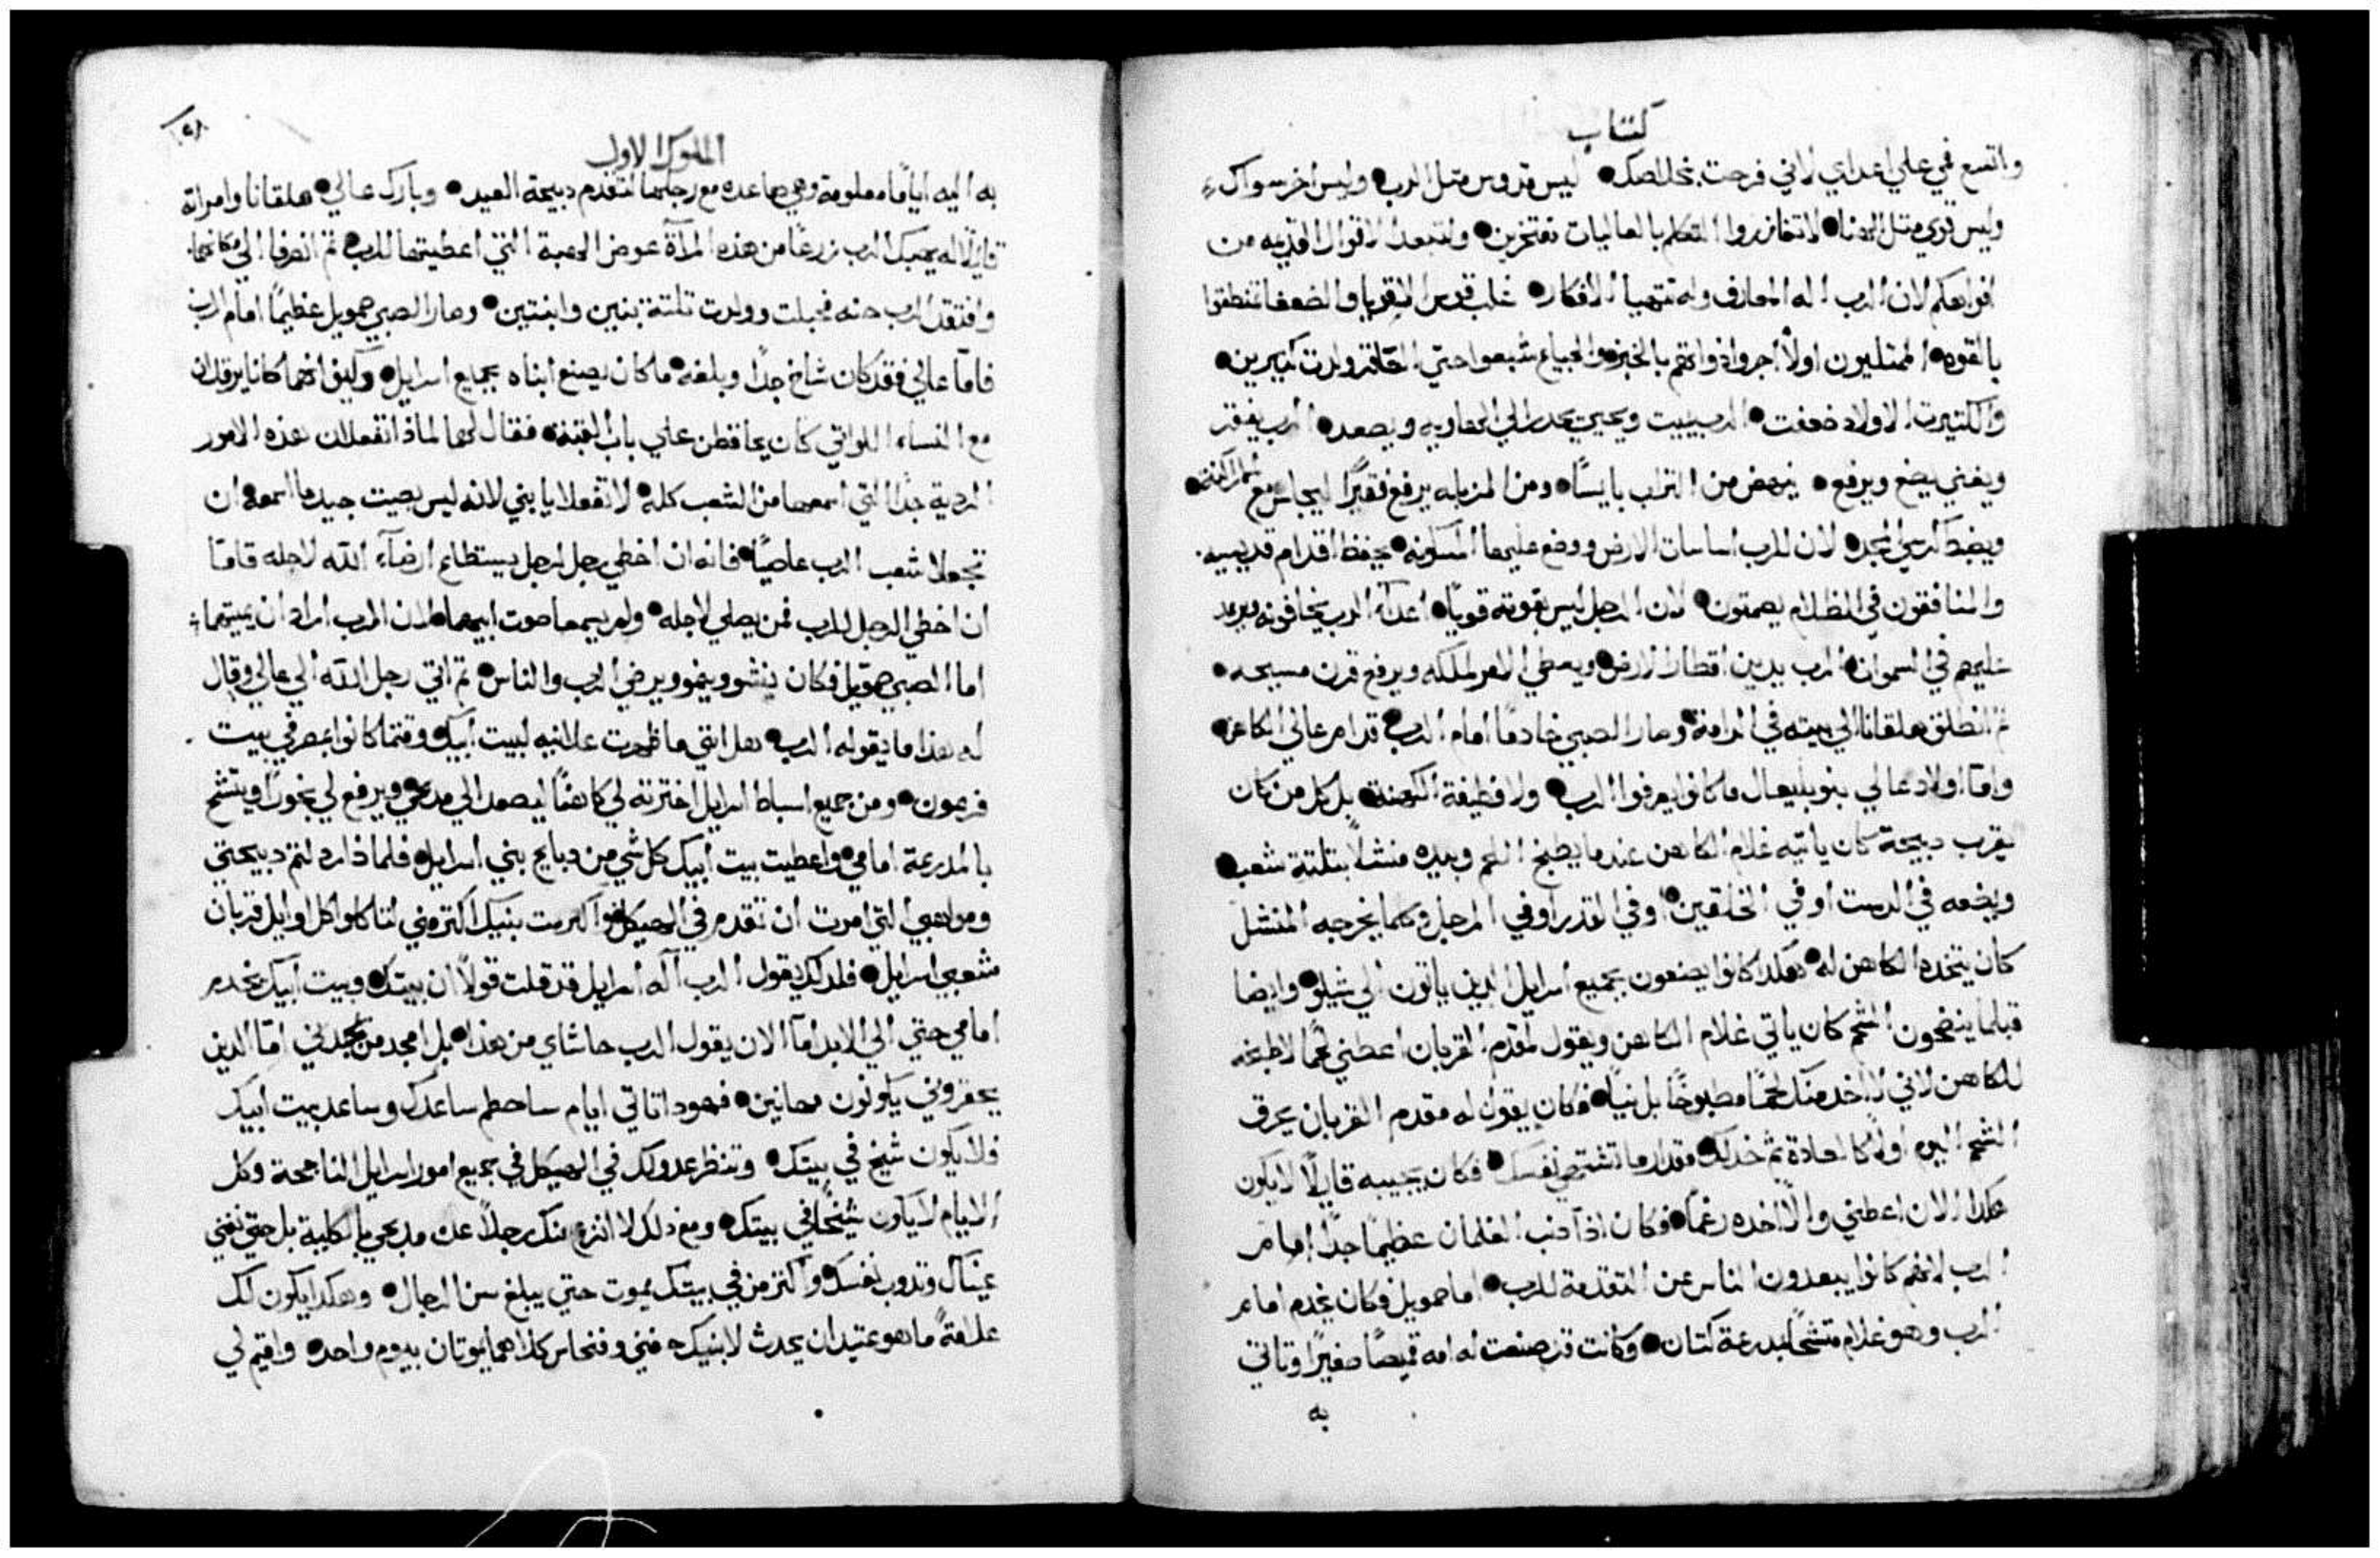 كتاب
واتسع في علي اعداي لاني فرحت بخلاصك • ليس قدوس متل الرب • وليس اخر سواك
وليس قوي متل الهنا • لا تتعازروا التكلم بالعاليات مفتخرين • ولتبعد الاقوال القديمه من
افواهكم لان الرب اله المعارف وله تتهيا الافكار • غلب قوس الاقويا والضعفا تنطقوا
بالقوه • الممتليون اولاً اجروا ذواتهم بالخبز • والجياع شبعوا حتي العاقر ولدت كتيرين •
والكتيرت الاولاد ضعفت • الرب يميت ويحيي يحدر الي الهاويه ويصعد • الرب يفقر
ويغني يضع ويرفع • ينهض من التراب بايسًا • ومن المزبله يرفع فقيرًا ليجلس مع
ويضبط كرسي المجد • لان للرب اساسات الارض ووضع عليها المسكونه • يحفظ اقدام قديسيه
والمنافقون في الظلام يصمتون • لان الرجل ليس بقوته قويًا • اعدآء الرب يخافونه ويرعد
عليهم في السموات • الرب يدين اقطار الارض ويعطي الامر لملكه ويرفع قرن مسيحه •
تم انطلق هلقانا الي بيته في الرامة • وصار الصبي خادمًا امام الرب • قدام عالي الكاهن •
واما اولاد عالي بنو بليعال ما كانوا يعرفوا الرب • ولا وظيفة الكهنة • بل كل من كان
يقرب دبيحة كان ياتيه غلام الكاهن عندما يطبخ اللحم وبيده منشلاً بتلتة شعب •
ويضعه في الدست او في الخلقين • او في القدر او في المرجل وكلما يخرجه المنشل
كان يتخده الكاهن له • هكدا كانوا يصنعون بجميع اسرايل الدين ياتون الي شيلو • وايضا
قبلما ينضجون الشحم كان ياتي غلام الكاهن ويقول لمقدم القربان اعطني لحمًا لاطبخه
للكاهن لاني لا اخد منك لحمًا مطبوخًا بل نيًا • فكان يقول له مقدم القربان يحرق
الشحم اليوم اولاً كالعادة تم خد لك مقدار ما تشتهي نفسك • فكان يجيبه قايلاً لا يكون
هكدا الان اعطني والا اخده رغمًا • فكان اذآ دنب الغلمان عظيمًا جدًا امام
الرب لانهم كانوا يبعدون الناس عن التقدمة للرب • اما صمويل فكان يخدم امام
الرب وهو غلام متشحًا بدرعة كتان • وكانت قد صنعت له امه قميصًا صغيرًا وتاتي
به
الملوك الاول
به اليه ايامًا معلومة وهي صاعده مع رجلها لتقدم دبيحة العيد • وبارك عالي • هلقانا وامراته
قايلاً له يهبك الرب زرعًا من هذه المرآة عوض الهبة التي اعطيتها للرب • تم انصرفا الي مكانهما
وافتقد الرب حنه فحبلت وولدت تلتة بنين وابنتين • وصار الصبي صمويل عظيمًا امام الرب
فاما عالي فقد كان شاخ جدًا وبلغه • ما كان يصنع ابناه بجميع اسرايل • وكيف انهما كانا يرقدان
مع النساء اللواتي كان يحافظن علي باب القبة • فقال لهما لماذا تفعلان هذه الامور
الردية جدًا التي اسمعها من الشعب كله • لا تفعلا يا بني لانه ليس بصيت جيد ما اسمعه ان
تجعلا شعب الرب عاصيًا • فانه ان اخطي رجل لرجل يستطاع ارضآء الله لاجله فاما
ان اخطي الرجل للرب فمن يصلي لاجله • ولم يسمعا صوت ابيهما • لان الرب اراد ان يميتهما
اما الصبي صمويل فكان ينشو وينمو ويرضي الرب والناس • تم اتي رجل الله الي عالي وقال
له هذا ما يقوله الرب • هل انني ما ظهرت علانيه لبيت ابيك وقتما كانوا بمصر في بيت
فرعون • ومن جميع اسباط اسرايل اخترته لي كاهنًا ليصعد الي مدبحي ويرفع لي بخورًا ويتشح
بالمدرعة امامي • واعطيت بيت ابيك كل شي من دبايح بني اسرايل • فلماذا رد لتم دبيحتي
ومواهبي التي امرت ان تقدم في الهيكل • واكرمت بنيك اكتر مني لتاكلوا كل اوايل قربان
شعبي اسرايل • فلدلك يقول الرب اله اسرايل قد قلت قولاً ان بيتك • وبيت ابيك يخدم
امامي حتي الي الابد امآ الان يقول الرب حاشاي من هذا • بل امجد من يمجدني اما الدين
يحقروني يكونون مهانين • فهودا تاتي ايام ساحطم ساعدك وساعد بيت ابيك
فلا يكون شيخ في بيتك • وتنظر عدوك في الهيكل في جميع امور اسرايل الناجحة وكل
الايام لا يكون شيخًا في بيتك • ومع دلك لا انزع منك رجلاً عن مدبحي بالكلية بل حتي تفني
عيناك وتدوب نفسك • واكتر من في بيتك يموت حتي يبلغ سن الرجال • وهكدا يكون لك
علامةً ما هو عتيد ان يحدث لابنيك حفني وفنحاس كلاهما يموتان بيوم واحد • واقيم لي